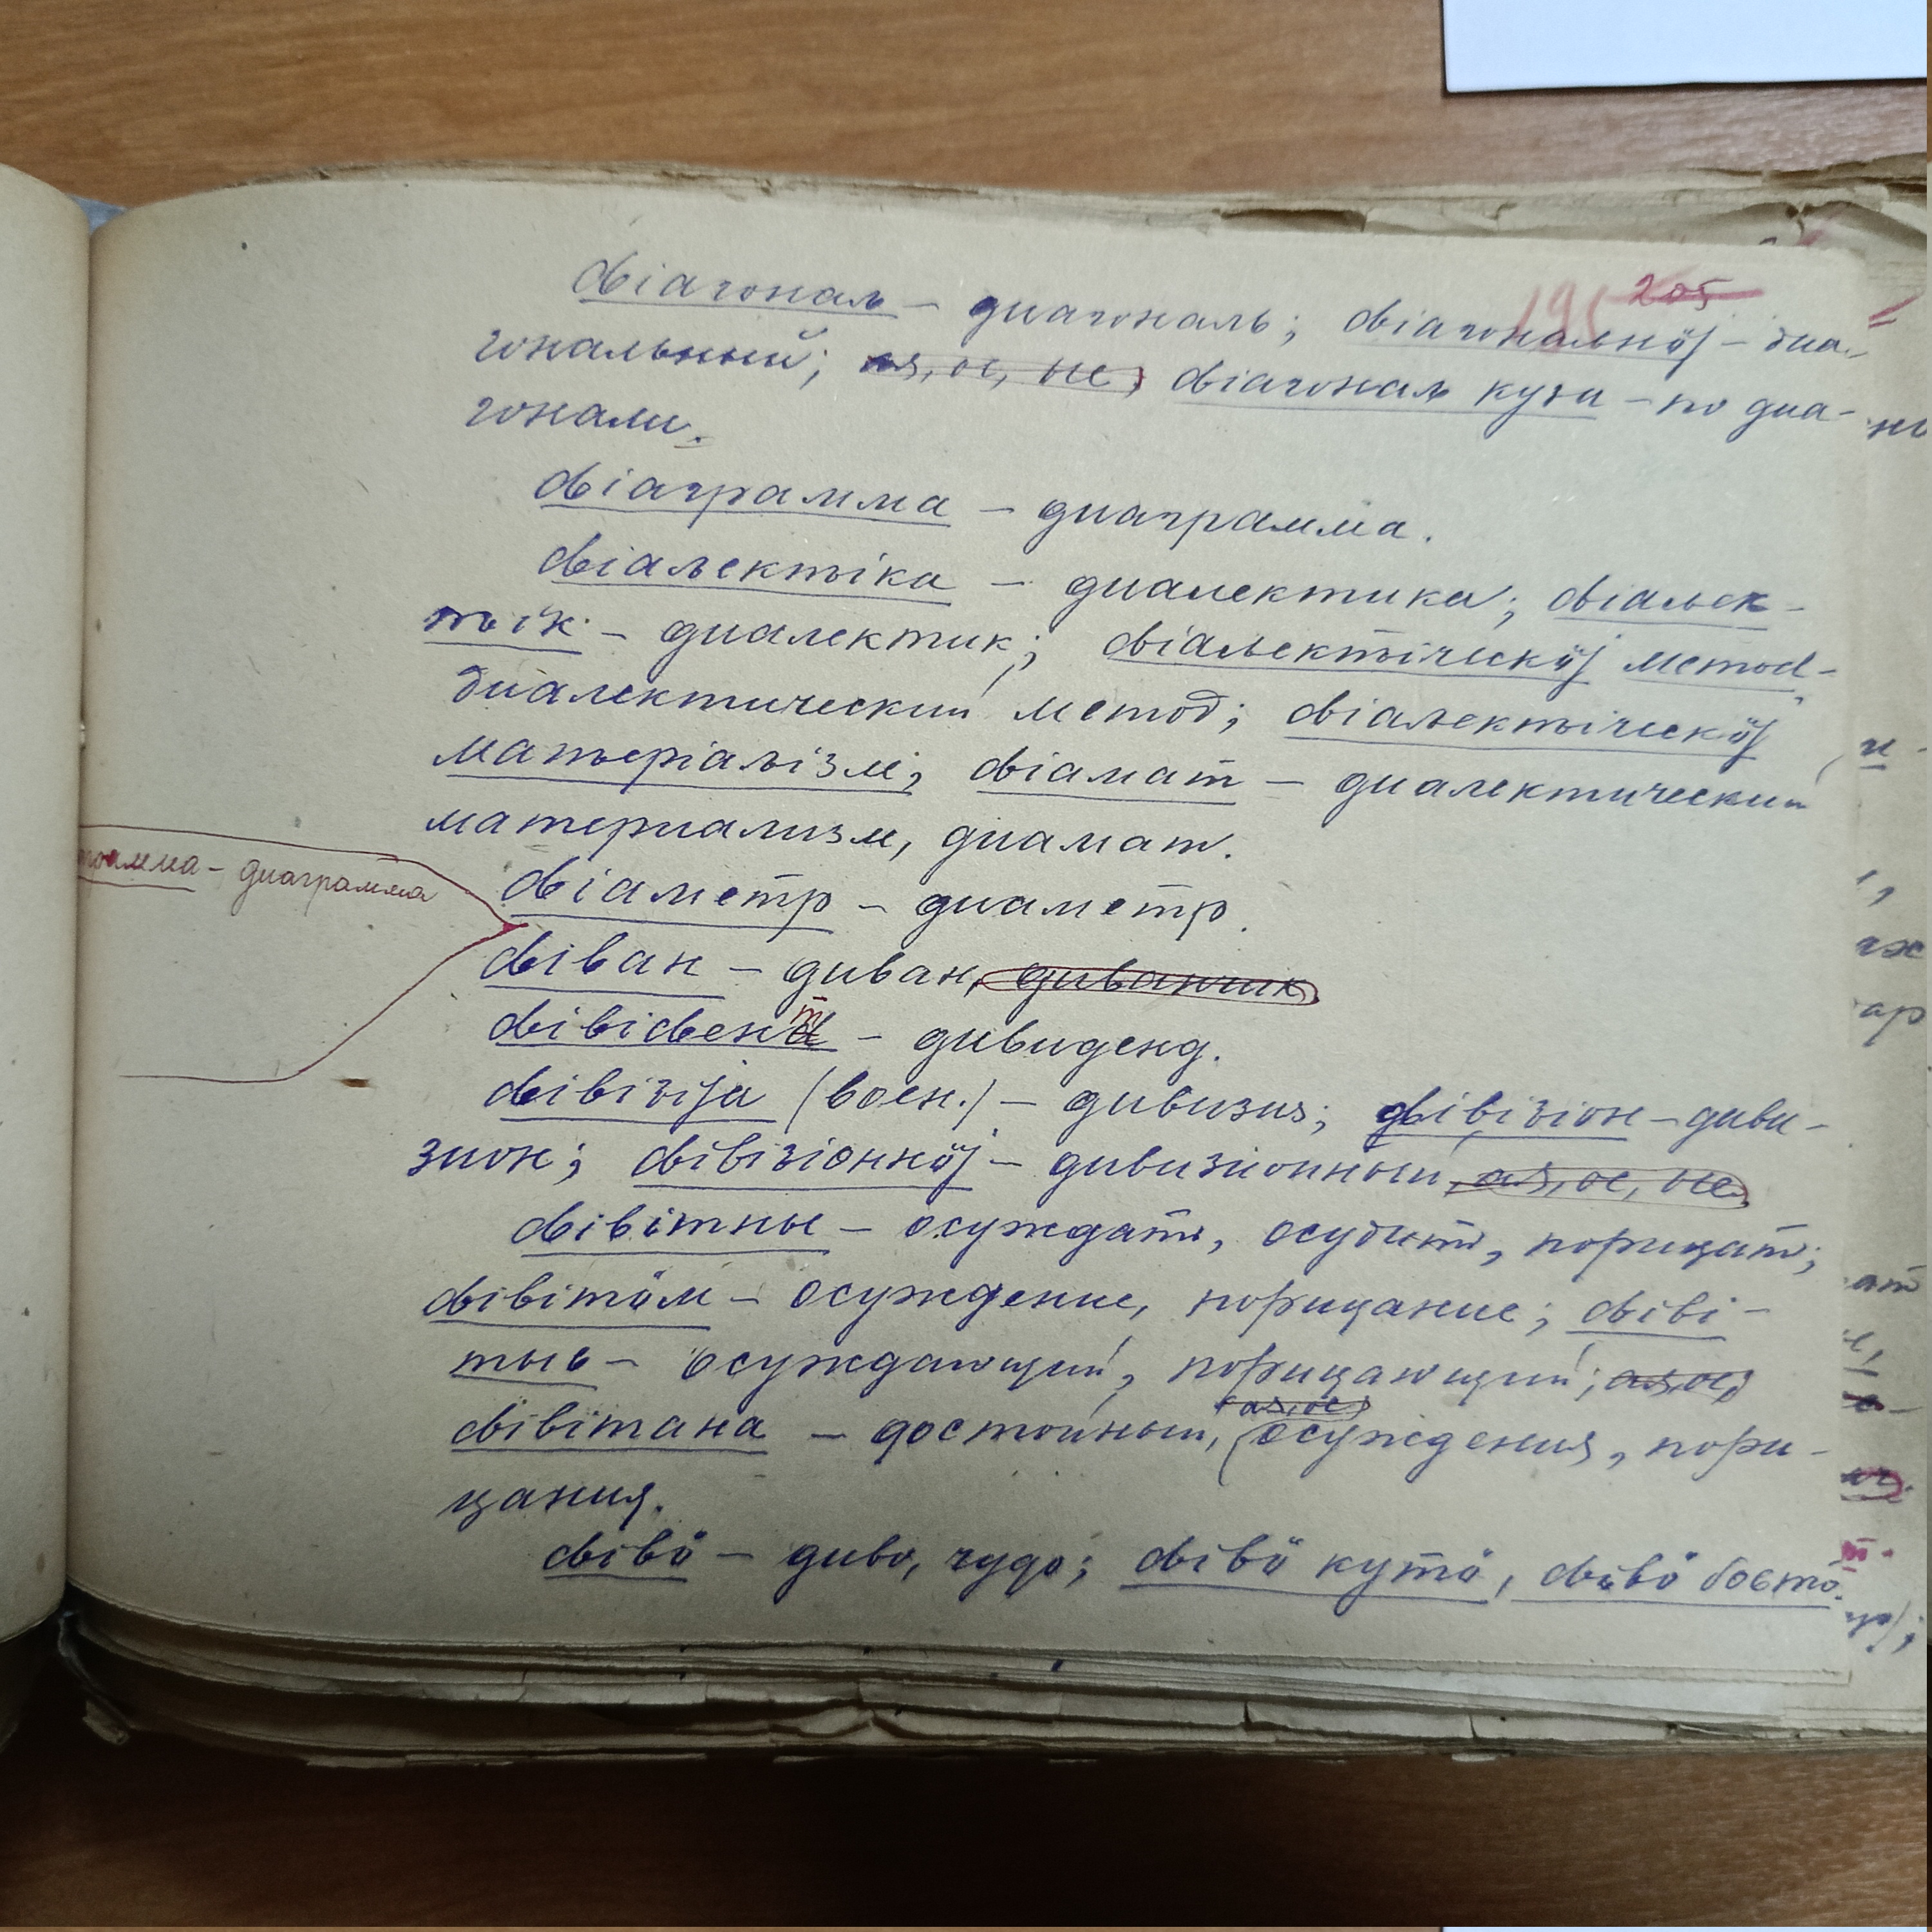 195 205
ԃіагонаԉ – диагональ; ԃіагонаԉнӧј – диа-
гональный; ая, ое, ые; ԃіагонаԉ куԅа – по диа-
гонали.
ԃіаграмма – диаграмма.
ԃіаԉекԏіка – диалектика; ԃіаԉек-
ԏік – диалектик; ԃіаԉекԏіческӧј метоԁ –
диалектический метод; ԃіаԉекԏіческӧј
маԏеріаԉізм, ԃіамат – диалектический
материализм, диамат.
– диаграмма
ԃіаметр – диаметр.
ԃіван – диван, диванчик
т
ԃівіԃенԁ – дивиденд.
ԃівіԅіја (воен.) – дивизия; ԃівіԅіон – диви-
зион; ԃівіԅіоннӧј – дивизионный, ая, ое, ые.
ԃівітны – осуждать, осудить, порицать;
ԃівітӧм – осуждение, порицание; ԃіві-
тыԍ – осуждающий, порицающий; ая, ое;
ая, ое
ԃівітана – достойный, осуждения, пори-
цания.
ԃівӧ – диво, чудо; ԃівӧ кутӧ, ԃівӧ боԍтӧ